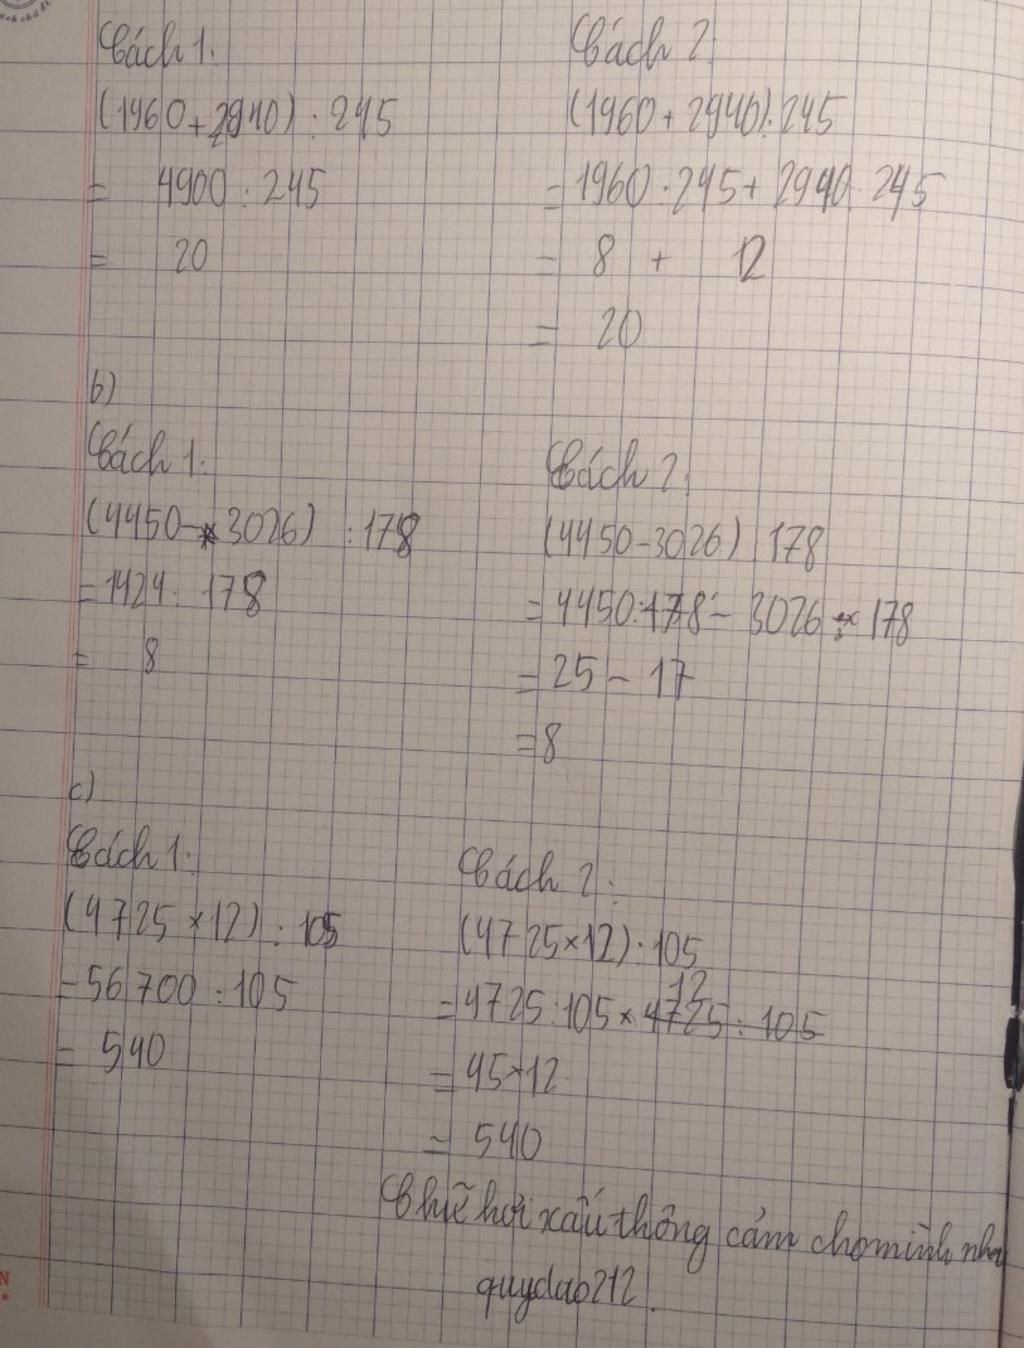 Cách 1:
(1960+2940) : 245
= 4900 : 245
= 20
Cách 2:
(1960+2940): 245
= 1960 : 245 + 2940: 245
= 8 + 12
= 20
b)
Cách 1:
(4450-3026) : 178
= 1424 : 178
= 8
Cách 2:
(4450-3026) : 178
= 4450:178 - 3026 : 178
= 25 - 17
= 8
c)
Cách 1:
(4725 × 12) : 105
= 56 700 : 105
= 540
Cách 2:
(4725×12) : 105
= 4725 : 105 × 12
= 45×12
= 540
Chữ hơi xấu thông cảm cho mình nha
quydao212.